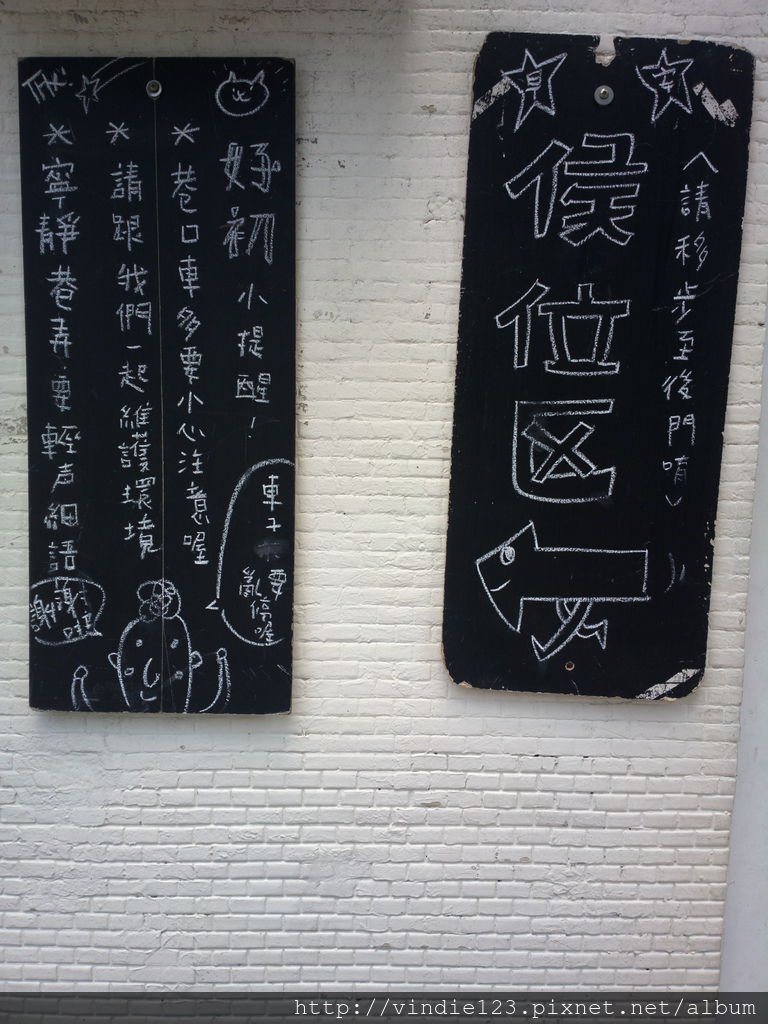 好初小提醒！
*巷口車多要小心注意喔
*請跟我們一起維護環境
*寧靜巷弄要輕声細語
謝謝
車子
要
亂停喔
THX!
侯位区
(請移步至後門唷)
http://vindie123.pixnet.net/album